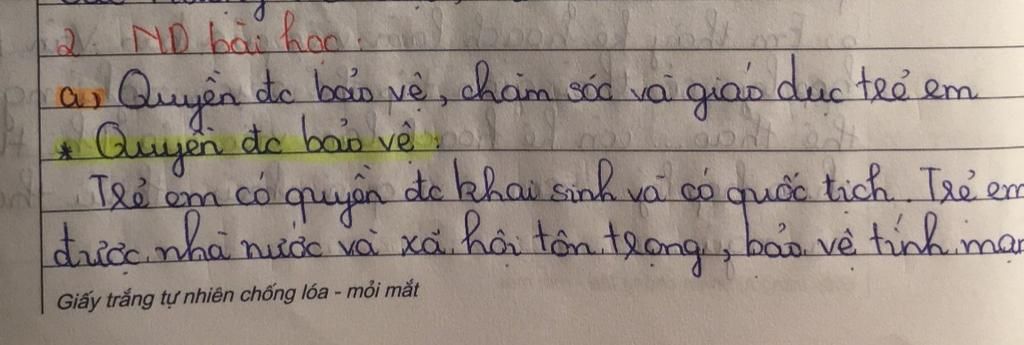 2. ND bài học:
a) Quyền đc bảo vệ, chăm sóc và giáo dục trẻ em
* Quyền đc bảo vệ:
Trẻ em có quyền đc khai sinh và có quốc tịch. Trẻ em
được nhà nước và xã hội tôn trọng, bảo vệ tính mạn
Giấy trắng tự nhiên chống lóa - mỏi mắt